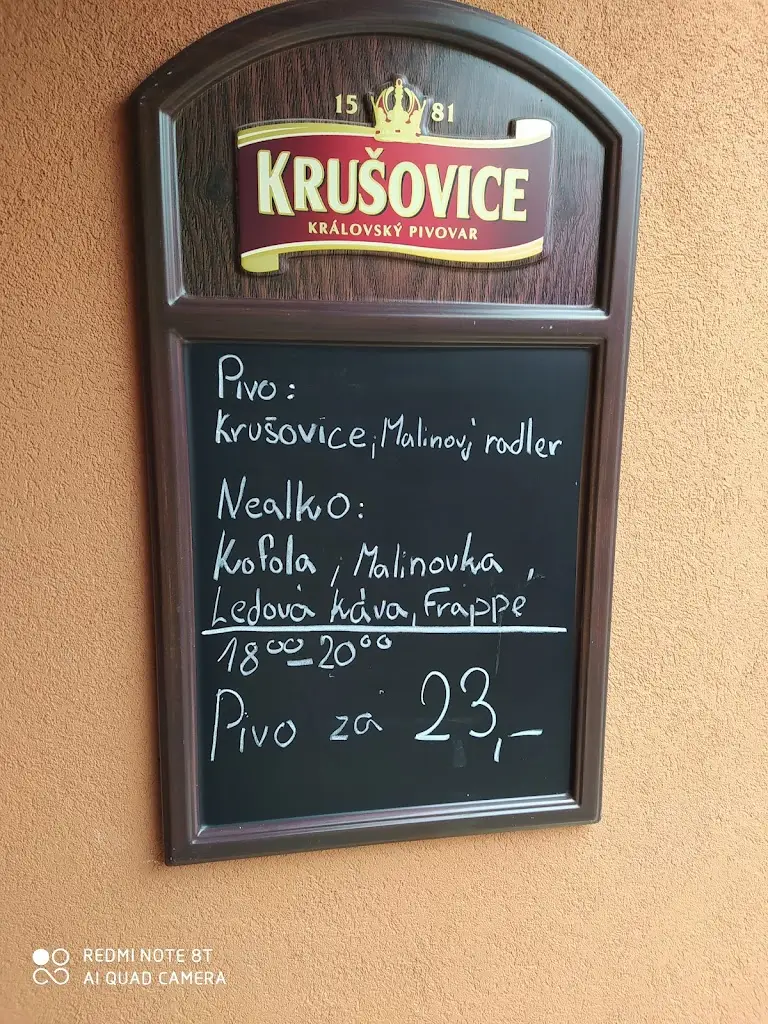 15 81
KRUŠOVICE
KRÁLOVSKÝ PIVOVAR
Pivo:
Krušovice, Malinový radler
Nealko:
Kofola, Malinovka,
Ledová káva, Frappé
18⁰⁰-20⁰⁰
Pivo za 23,-
REDMI NOTE 8T
AI QUAD CAMERA